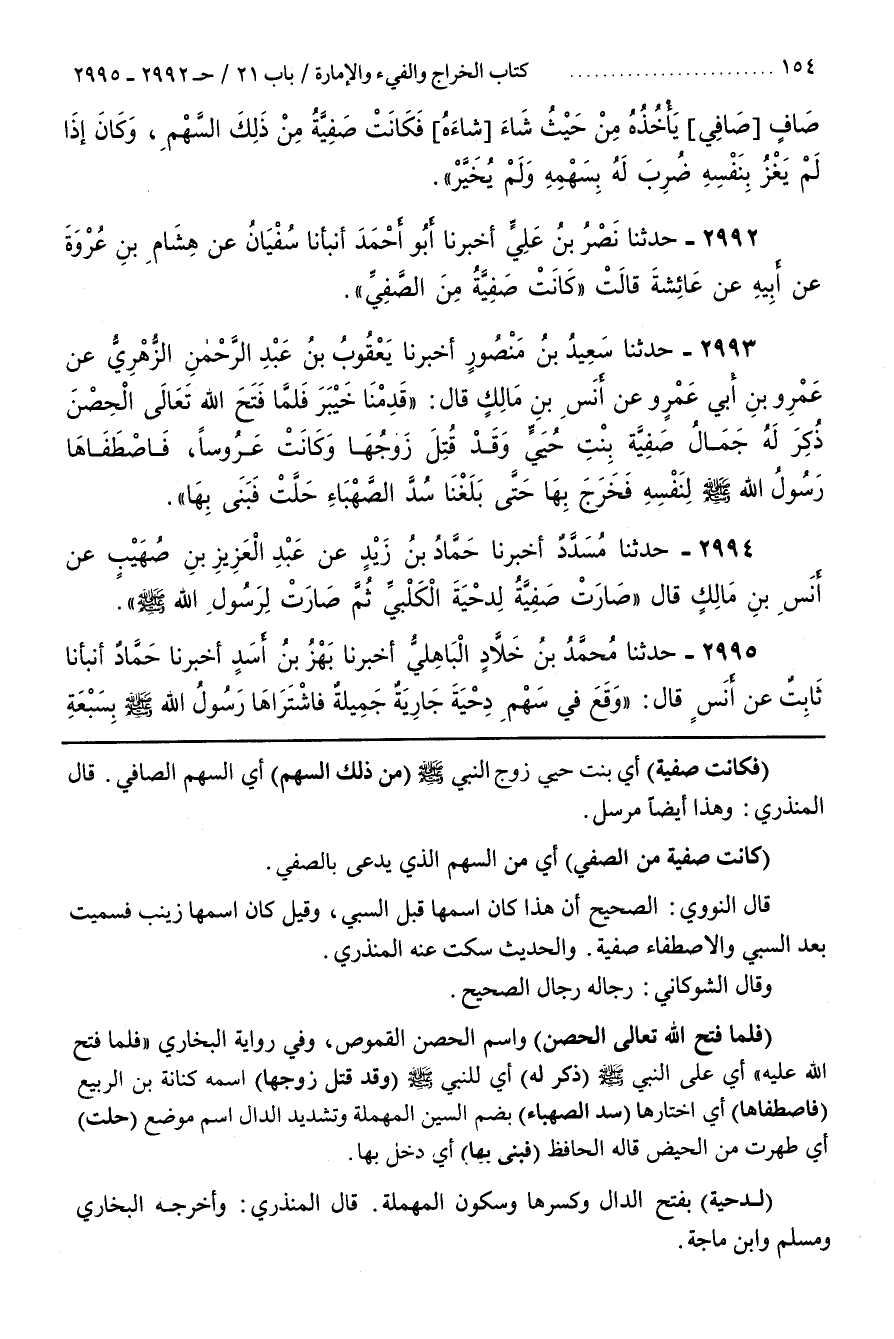 ١٥٤ ........................ كتاب الخراج والفيء والإمارة / باب ٢١ / حـ ٢٩٩٢ - ٢٩٩٥
صَافٍ [صَافِي] يَأْخُذُهُ مِنْ حَيْثُ شَاءَ [شاءَهُ] فَكَانَتْ صَفِيَّةُ مِنْ ذَلِكَ السَّهْمِ، وَكَانَ إذَا
لَمْ يَغْزُ بِنَفْسِهِ ضُرِبَ لَهُ بِسَهْمِهِ وَلَمْ يُخَيَّرْ».
٢٩٩٢ - حدثنا نَصْرُ بنُ عَلِيٍّ أخبرنا أَبُو أَحْمَدَ أنبأنا سُفْيَانُ عن هِشَامِ بنِ عُرْوَةَ
عن أَبِيهِ عن عَائِشةَ قالَتْ «كَانَتْ صَفِيَّةُ مِنَ الصَّفِيِّ».
٢٩٩٣ - حدثنا سَعِيدُ بنُ مَنْصُورٍ أخبرنا يَعْقُوبُ بنُ عَبْدِ الرَّحْمٰنِ الزُّهْرِيُّ عن
عَمْرِو بنِ أَبي عَمْرٍو عن أَنَسِ بنِ مَالِكٍ قال: «قَدِمْنَا خَيْبَرَ فَلمَّا فَتَحَ الله تَعَالَى الْحِصْنَ
ذُكِرَ لَهُ جَمَالُ صَفِيَّةَ بِنْتِ حُيَيٍّ وَقَدْ قُتِلَ زَوْجُهَا وَكَانَتْ عَرُوساً، فَاصْطَفَاهَا
رَسُولُ الله ﷺ لِنَفْسِهِ فَخَرَجَ بِهَا حَتَّى بَلَغْنَا سُدَّ الصَّهْبَاءِ حَلَّتْ فَبَنَى بِهَا».
٢٩٩٤ - حدثنا مُسَدَّدٌ أخبرنا حَمَّادُ بنُ زَيْدٍ عن عَبْدِ الْعَزِيزِ بنِ صُهَيْبٍ عن
أَنَسِ بنِ مَالِكٍ قال «صَارَتْ صَفِيَّةُ لِدحْيَةَ الْكَلْبيِّ ثُمَّ صَارَتْ لِرَسُولِ الله ﷺ».
٢٩٩٥ - حدثنا مُحمَّدُ بنُ خَلَّادٍ الْبَاهِليُّ أخبرنا بَهْزُ بنُ أَسَدٍ أخبرنا حَمَّادٌ أنبأنا
ثَابِتٌ عن أَنَسٍ قال: «وَقَعَ في سَهْمِ دِحْيَةَ جَارِيَةٌ جَمِيلةٌ فاشْتَرَاهَا رَسُولُ الله ﷺ بِسَبْعَةِ
(فكانت صفية) أي بنت حيي زوج النبي ﷺ (من ذلك السهم) أي السهم الصافي. قال
المنذري: وهذا أيضاً مرسل.
(كانت صفية من الصفي) أي من السهم الذي يدعى بالصفي.
قال النووي: الصحيح أن هذا كان اسمها قبل السبي، وقيل كان اسمها زينب فسميت
بعد السبي والاصطفاء صفية. والحديث سكت عنه المنذري.
وقال الشوكاني: رجاله رجال الصحيح.
(فلما فتح الله تعالى الحصن) واسم الحصن القموص، وفي رواية البخاري «فلما فتح
الله عليه» أي على النبي ﷺ (ذكر له) أي للنبي ﷺ (وقد قتل زوجها) اسمه كنانة بن الربيع
(فاصطفاها) أي اختارها (سد الصهباء) بضم السين المهملة وتشديد الدال اسم موضع (حلت)
أي طهرت من الحيض قاله الحافظ (فبنى بها) أي دخل بها.
(لدحية) بفتح الدال وكسرها وسكون المهملة. قال المنذري: وأخرجه البخاري
ومسلم وابن ماجة.